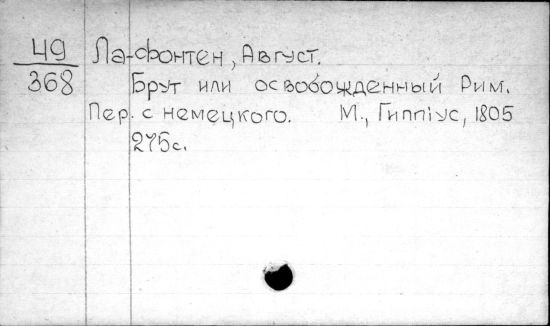 49 Ла-Фонтен, Август.
368 Брут или освобожденный Рим.
Пер. с немецкого. М., Гиппiус, 1805
275с.